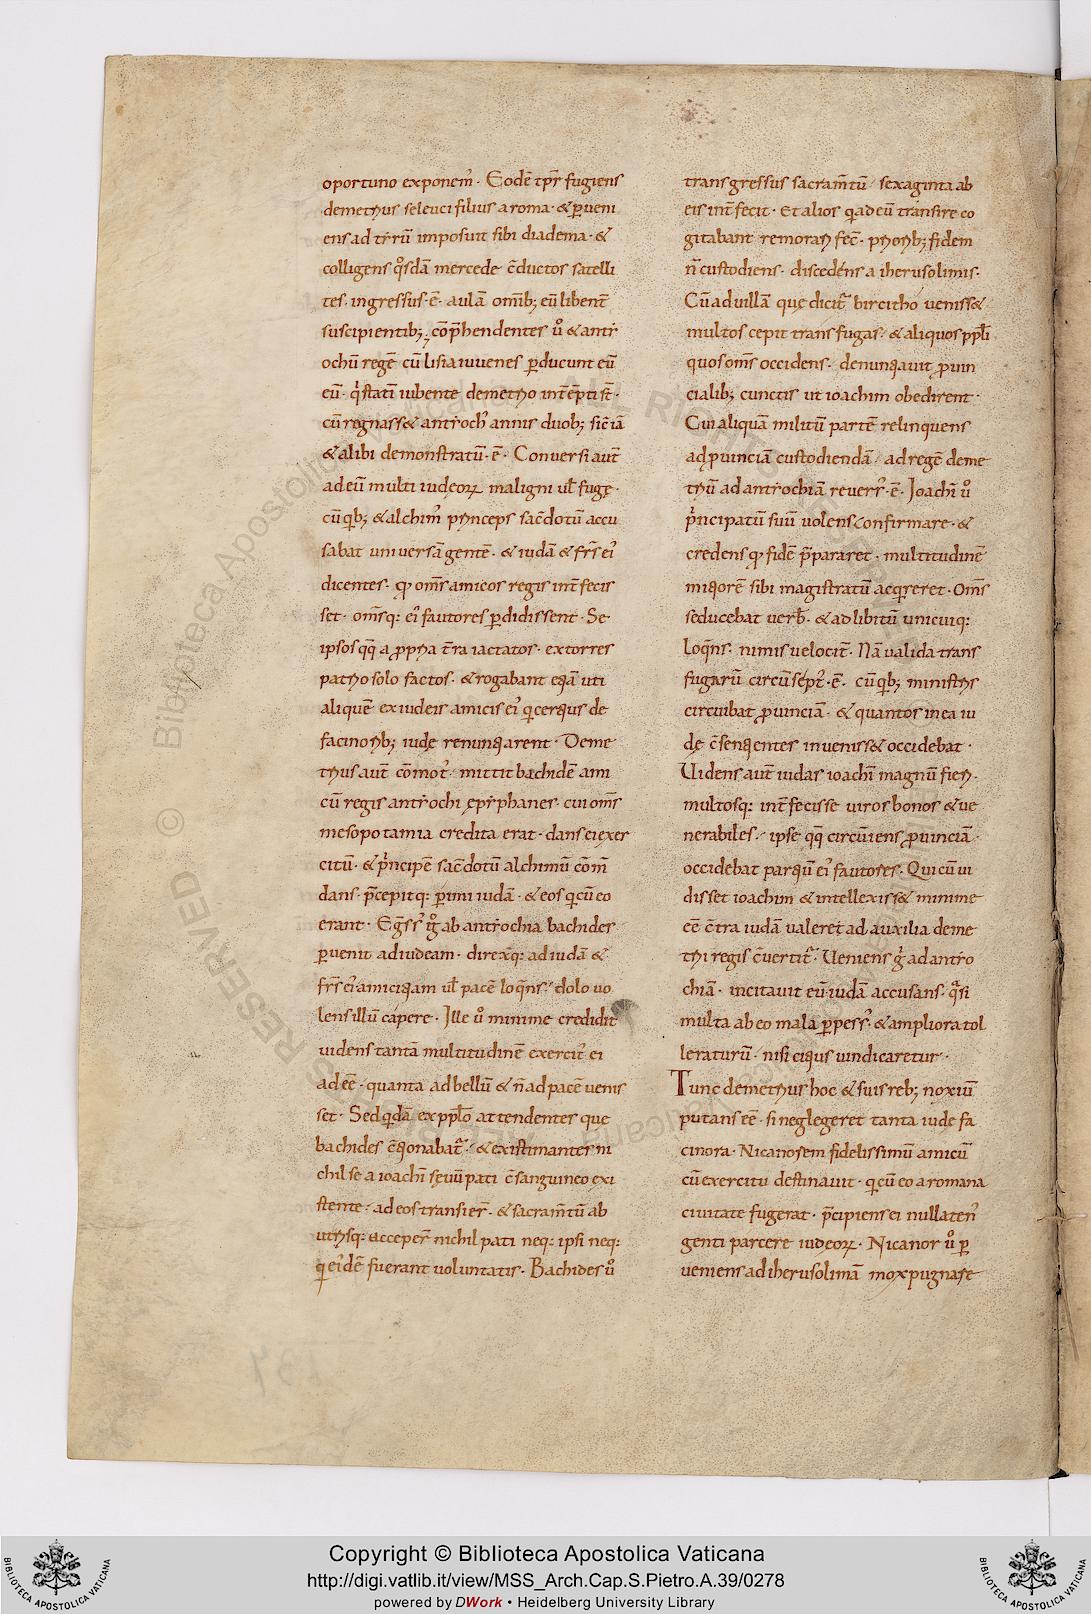 oportuno exponem̃. Eodē tp̄r fugiens
demetrius seleuci filius a roma. & p̄ueni
ens ad tr̃rū imposuit sibi diadema. &
colligens q̊sdā mercede c̄ductos satelli
tes. ingressus. ē. aulā om̄ib; eū libent̄
suscipientib; cōp̄hendentes u̾ & antı
ochū regē cū lisia iuuenes p̄ducunt eū
eū. q̇ statī iubente demetrio int̄ēpti st̄.
cū regnass& antioch᾽ annis duob; sic̄ iā
& alibi demonstratū. ē. Conuersi aut̄
ad eū multi iudeoꝝ maligni uł fugę.
cū q̇b; & alchim᾽ princeps sac̄dotū accu
sabat uniuersā gentē. & iudā & fr̄s ei᾽
dicentes. qđ om̄s amicos regis int̄fecis
set. om̄sq: ei᾽ fautores p̄didissent. Se
ipsos qq̄ a ꝓpria t̄ra iactatos. extorres
patrio solo factos. & rogabant eq̇ā uti
aliquē ex iudeis amicis ei᾽ qi certius de
facinorib; iudę renuntiarent. Deme
trius aut̄ cōmot᾽. mittit bachidē ami
cū regis antiochi epiphanes. cui om̄s
mesopotamia credita erat. dans ei exer
citū. & ṗncipē sac̄dotū alchimū cōm̄
dans. p̄cepitq: p̄imi iudā. & eos qi cū eo
erant. Eg̃ss᾽ ig̃ ab antiochia bachides
p̄uenit ad iudeam. direxq: ad iudā &
fr̄s ei᾽ amicitiam uł pacē loq̄ns. dolo uo
lens illū capere. Ille u̾ minime credidit
uidens tantā multitudinē exercit᾽ ei
adeē. quanta ad bellū & n̄ ad pacē uenis
set. Sed qidā ex pp̄lo attendentes que
bachides c̄tionabat᾽. & existimantes ni
chil se a ioachī seuū pati c̄sanguineo exi
stente. ad eos transier̄. & sacram̄tū ab
utrisq: acceper̄ nichil pati neq: ipsi neq:
qi ei᾽dē fuerant uoluntatis. Bachides u̾
transgressus sacram̄tū. sexaginta ab
eis int̄fecit. Et alios qi ad eū transire co
gitabant remorari fec̄. priorib; fidem
n̄ custodiens. discedéns a iherusolimis.
Cū ad uillā que dicit᾽ bircithoueniss&
multos cepit transfugas. & aliquos pp̄li
quos om̄s occidens. denuntiauit ꝓuin
cialib; cunctis ut ioachim obedirent.
Cui aliquā militū partē relinquens
ad ꝓuinciā custodiendā. ad regē deme
triū ad antiochiā reuers᾽. ē. Ioachī u̾
ṗncipatū suū uolens confirmare. &
credens qđ fidē p̄pararet. multitudinē
maiorē sibi magistratū acq̇reret. Om̄s
seducebat uerb᾽. & ad libitū unicuiq:
loq̄ns. nimis uelocit̄. Nā ualida trans
fugarū circū sept᾽. ē. cū q̇b; ministris
circuibat ꝓuinciā. & quantos in ea iu
dę c̄sentientes inueniss& occidebat.
Uidens aut̄ iudas ioachī magnū fieri.
multosq: int̄fecisse uiros bonos & ue
nerabiles. ipse qq̄ circūiens ꝓuinciā.
occidebat partiū ei᾽ fautores. Qui cū ui
disset ioachim & intellexiss& minime
eē c̄tra iudā ualeret ad auxilia deme
trii regis c̄uertit᾽. Ueniens g̊ ad antio
chiā. incitauit eū iudā accusans. q̃si
multa ab eo mala p̄pess᾽. & ampliora tol
leraturū. nisi citius uindicaretur.
Tunc demetrius hoc & suis reb; noxiū
putans eē. si neglegeret tanta iude fa
cinora. Nicanorem fidelissimū amicū
cū exercitu destinauit. qi cū eo a romana
ciuitate fugerat. p̄cipiens ei nullaten᾽
genti parcere iudeoꝝ. Nicanor u̾ p̄
ueniens ad iherusolimā mox pugnare
134
Copyright © Biblioteca Apostolica Vaticana
http://digi.vatlib.it/view/MSS_Arch.Cap.S.Pietro.A.39/0278
powered by DWork • Heidelberg University Library